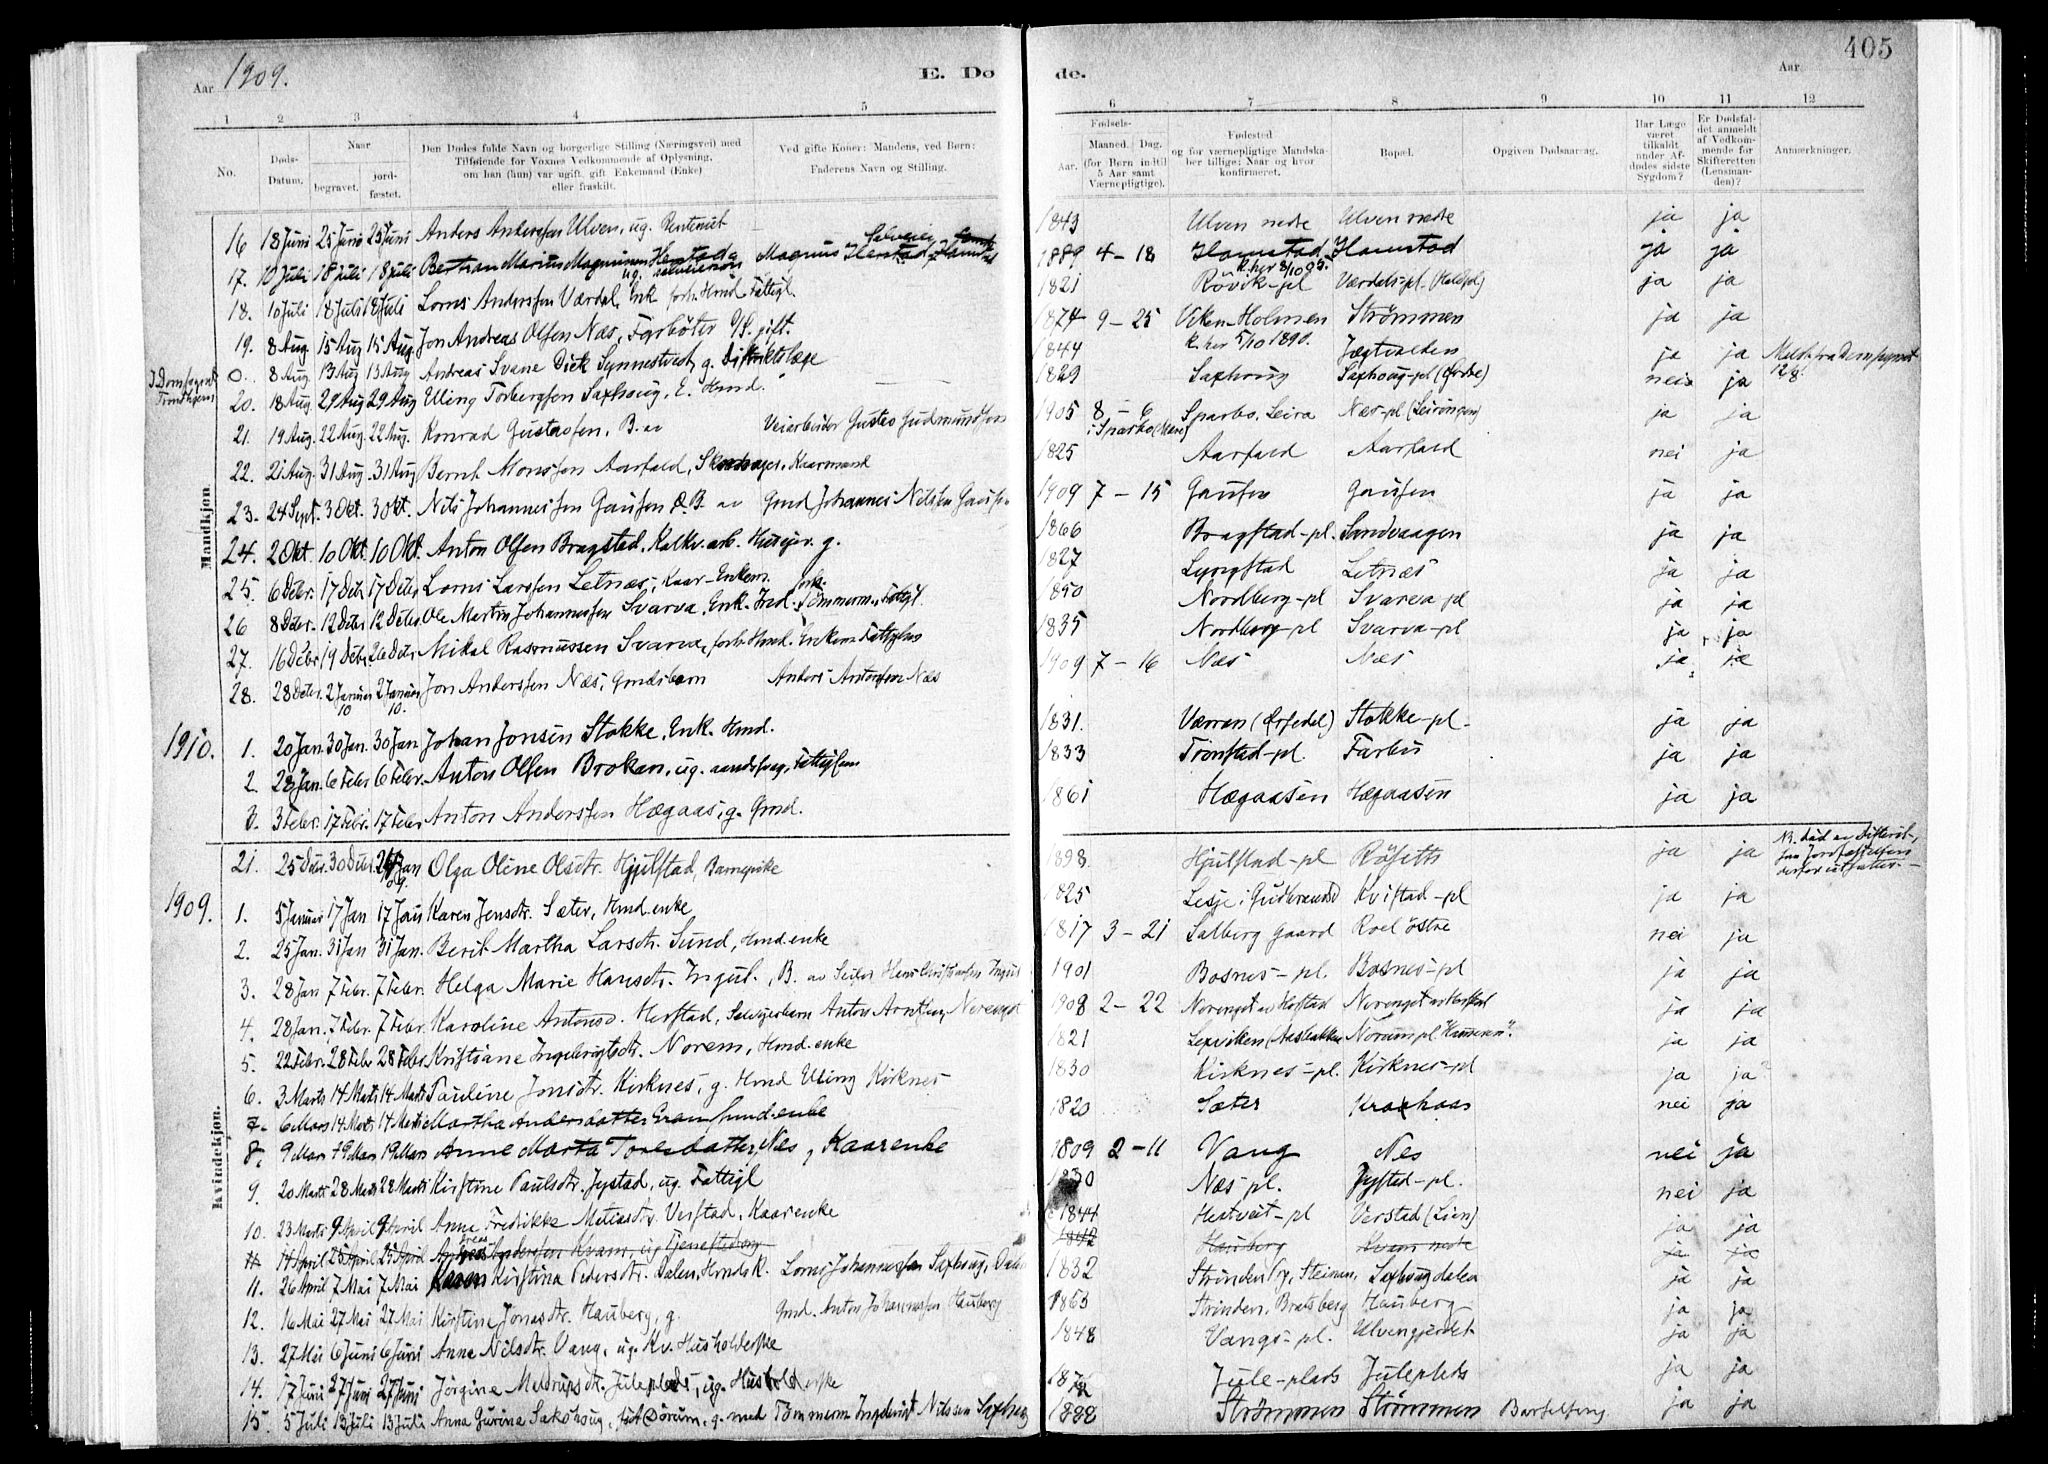 405
Aar 1909. E. Dø de. Aar
1 2 3 4 5 6 7 8 9 10 11 12
No. Døds-Datum. Naar begravet. jord-fæstet. Den Dødes fulde Navn og borgerlige Stilling (Næringsvei) med Tilføiende for Voxnes Vedkommende af Oplysning, om han (hun) var ugift, gift Enkemand (Enke) eller fraskilt. Ved gifte Koner: Mandens, ved Børn: Faderens Navn og Stilling. Fødsels- Aar. Maaned. Dag. (for Børn indtil 5 Aar samt Værnepligtige). Fødested og for værnepligtige Mandskaber tillige: Naar og hvor konfirmeret. Bopæl. Opgiven Dødsaarsag. Har Læge været tilkaldt under Afdødes sidste Sygdom? Er Dødsfaldet anmeldt af Vedkommende for Skifteretten (Lensmanden)? Anmærkninger.
Mandkjøn.
16 18 Juni 25 Juni 25 Juni Anders Anderssen Ulven, ug. 1843 Ulven nedre Ulven nedre ja ja
17. 10 Juli 18 Juli 18 Juli Bertran Marius Magnussen ug. Magnus Selveier 1889 4-18 Hamstad k. her 8/10 05. Hamstad ja ja
18. 10 Juli 18 Juli 18 Juli Lorns Anderssen Værdal, Enk. forh. Hmd Fattigl. 1821 Rövik-pl Værdals-pl. ja ja
19. 8 Aug. 15 Aug 15 Aug. Jon Andreas Olsen Næs, Fyrböter gift. 1874 9-25 Viken-Holmen k. her 5/10 1890. Strömmen ja ja
0. 8 Aug. 13 Aug 13 Aug Andreas Svane Dick Synnestvedt, g. Distriktslæge 1844 Jægtvolden ja ja
20. 18 Aug. 29 Aug 29 Aug Elling Torbergssen Saxhoug, E. Hmd. 1829 Saxhoug Saxhoug-pl nei ja
21. 19 Aug. 22 Aug. 22 Aug. Konrad Gustavsen, B. av Veiarbeider Gustav Gudmundsen 1905 8-6 Sparbo, Leira Næs-pl. ja ja
22. 21 Aug. 31 Aug 31 Aug Bernt Monssen Aarfald, Kaarmand 1825 Aarfald Aarfald nei ja
23. 24 Sept. 3 Okt. 3 Okt. Nils Johannessen Gausen B. av Gmd Johannes Nilssen 1909 7-15 Gausen Gausen ja ja
24. 2 Okt. 10 Okt. 10 Okt. Anton Olsen Bragstad, Kalkv. arb. Huseier. g. 1866 Bragstad-pl. Sundvaagen ja ja
25. 6 Debr. 17 Debr. 17 Debr. Lorns Larssen Letnæs, Kaar-Enkem. 1827 Lyngstad Letnæs ja ja
26 8 Debr. 12 Debr 12 Debr. Ole Martin Johannessen Svarva, Enk. Ind. forh. Tömmerm., Fattigl. 1850 Nordberg-pl Svarva-pl ja ja
27. 16 Debr 19 Debr 26 Debr Mikal Rasmussen Svarva, forh. Hmd. Enkem Fattighus 1835 Nordberg-pl Svarva-pl ja ja
28. 28 Debr. 2 Januar 10 2 Januar 10. Jon Anderssen Næs, Gmdsbarn Anders Antonsen Næs 1909 7-16 Næs Næs ja ja
1910. 1. 20 Jan. 30 Jan. 30 Jan Johan Jonsen Stokke, Enk. Hmd. 1831. Værran Stokke-pl. ja ja
2. 28 Jan. 6 Febr 6 Febr. Anton Olsen Brokan, ug. aandssvag, Fattiglem 1833 Tronstad-pl. Farbu ja ja
3. 3 Febr. 17 Febr. 17 Febr Anton Anderssen Hægaas, g. Gmd. 1861 Hægaasen Hægaasen ja ja
Kvindekjøn.
21. 25 Decr. 30 Decr. 24 Jan 09. Olga Oline Olsdtr. Hjulstad, Barnepike 1898 Hjulstad-pl Røsetts ja ja
1909. 1. 5 Januar 17 Jan 17 Jan Karen Jensdtr. Sæter, Hmd. enke 1825 Lesje i Gudbrandsd Kvistad-pl ja ja
2. 25 Jan. 31 Jan 31 Jan. Berit Martha Larsdtr. Sund, Hmd. enke 1817 3-21 Salberg gaard Roel östre nei ja
3. 28 Jan 7 Febr. 7 Febr. Helga Marie Hansdtr. Ingul., B. av 1901 Bosnes-pl. Bosnes-pl ja ja
4. 28 Jan. 7 Febr. 7 Febr Karoline Antonsd. Herstad, Selveierbarn Anton 1908 2-22 ja ja
5. 22 Febr. 28 Febr 28 Febr Kristiane Ingebrigtsdtr. Norem, Hmd. enke 1821 Lexviken Norum-pl ja ja
6. 3 Marts 14 Marts 14 Marts Pauline Jonsdtr. Kirknes, g. Hmd Elling Kirknes 1830 Kirknes-pl. Kirknes-pl ja ja?
7. 6 Mars 14 Mars 14 Mars Martha Andersdatter Gran Hmd.enke 1820 Sæter nei ja
8. 9 Mars 19 Mars 19 Mars Anne Marta Toresdatter, Næs, Kaarenke 1809 2-11 Vang Nes nei ja
9. 20 Marts 28 Marts 28 Marts Kirstine Paulsdtr. Jystad, ug. Fattigl 1830 Næs-pl. Jystad-pl. nei ja
10. 23 Marts 9 April 9 April Anne Fredrikke Matiasdtr. Verstad, Kaarenke 1844 Hustveit-pl Verstad (Lien) ja ja
11 14 April 25 April 25 April Anderssen Kvam, ug Tjenestedreng 1842 Hauberg Kvam nedre ja ja
11. 26 April 7 Mai 7 Mai Karen Kirstina Pedersdtr. Dalen, Hmds K. Lorns Johannessen Saxhoug, Dalen 1832 Strinden Steinan, Saxhoug dalen ja ja
12. 16 Mai 27 Mai 27 Mai Kirstine Jonasdtr. Hauberg, g. Gmd. Anton Johannessen Hauberg 1863 Strinden, Bratsberg Hauberg ja ja
13. 27 Mai 6 Juni 6 Juni Anna Nilsdtr. Vang, ug. Kv. Husholderske 1848 Vangs-pl. Ulvengjerdet ja ja
14. 17 Juni 27 Juni 27 Juni Jörgine Juleplads, ug. Husholderske 1872 Jule-plads Juleplads ja ja
15. 5 Juli 13 Juli 13 Juli Anna Gurina Sakshoug, g. med Tömmerm Ingebrigt Nilssen Saxhoug 1888 Strömmen Strömmen Barselseng ja ja